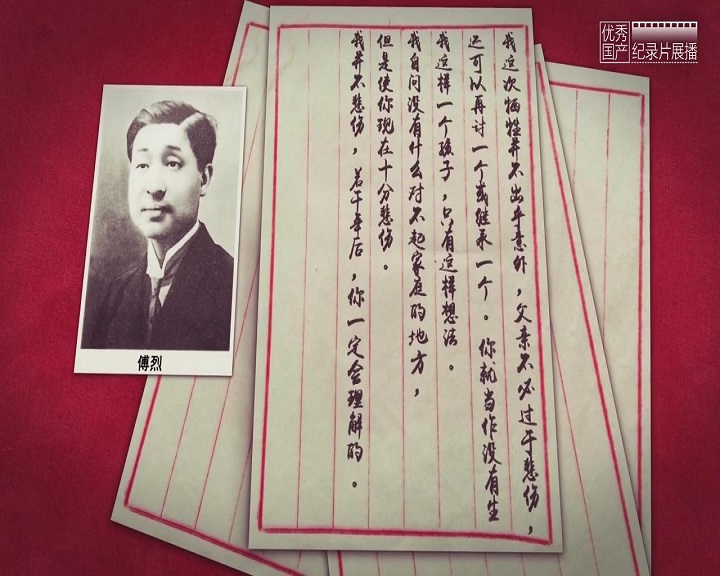 优秀
国产
纪录片展播
我这次牺牲并不出乎意外，父亲不必过于悲伤，
还可以再讨一个或继承一个。你就当作没有生
我这样一个孩子，只有这样想法。
我自问没有什么对不起家庭的地方，
但是使你现在十分悲伤。
我并不悲伤，若干年后，你一定会理解的。
傅烈